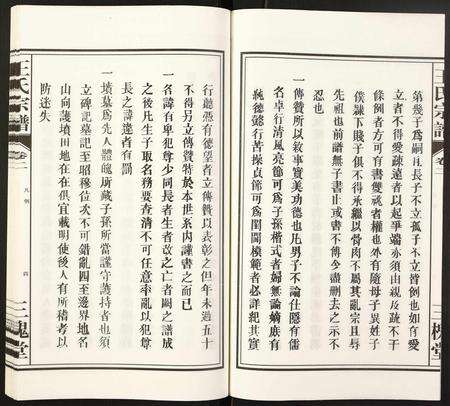 王氏宗譜
卷二
三槐堂
第幾子爲嗣凡長子不立孤子不立皆例也如有愛
立者不得愛疎遠者以起爭端亦須由親及疏不干
條例者方可有書雙祧者權也外有隨母子異姓子
僕隸下賤子俱不得承繼以骨肉不屬其亂宗且辱
先祖也前譜無子書止或書不傳今盡刪去之示不
忍也
一傳贊所以敘事實美功德也凡男子不論仕隱有儒
名卓行清風亮節可爲子孫楷式者婦無論嫡庶有
純德懿行苦操貞節可爲閨閫模範者必詳紀其實
行聽憑有德望者立傳贊以表彰之但年未過五十
不得另立傳贊特於本世系內謹書之而已
一名諱有卑犯尊少同長者生者改之亡者闕之譜成
之後凡生子取名務要查清不可任意率亂以犯尊
長之諱違者有罰
一墳墓爲先人體魄所藏子孫所當謹守護持者也須
立碑記墓記至昭穆位次不可錯亂四至邊界地名
山向護墳田地在在俱宜載明使後人有所稽考以
防迷失
王氏宗譜
卷二
凡例
四
三槐堂